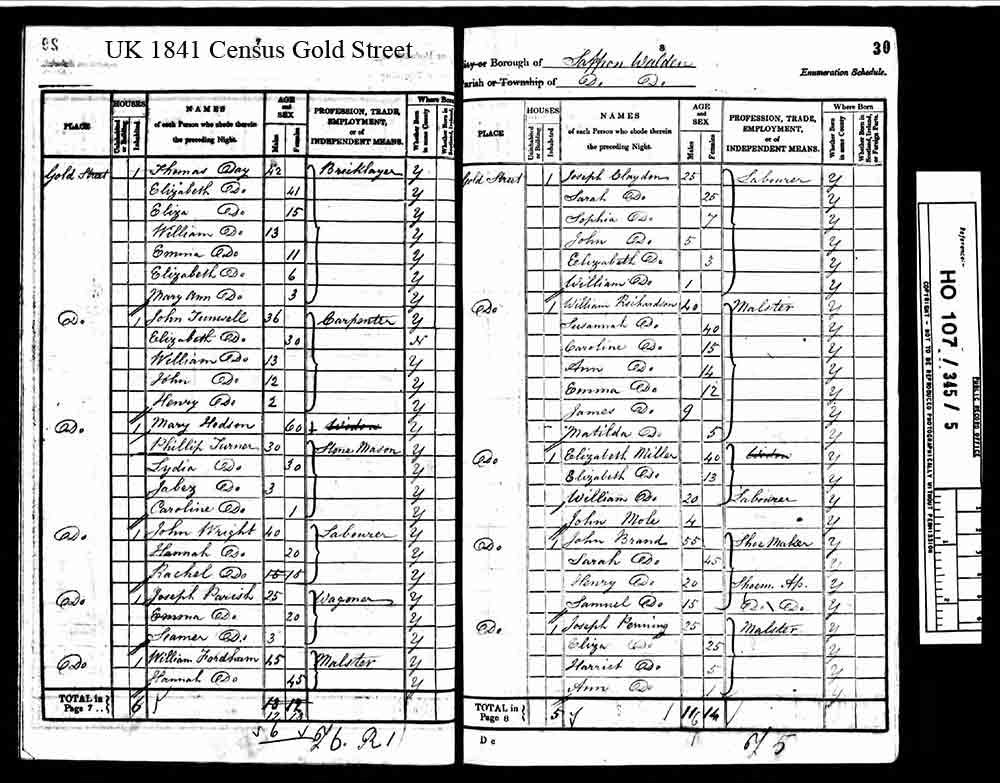 UK 1841 Census Gold Street
PLACE HOUSES NAMES of each Person who abode therein the preceding Night. AGE and SEX PROFESSION, TRADE, EMPLOYMENT, or of INDEPENDENT MEANS. Where Born
Uninhabited or Building Inhabited Males Females Whether Born in same County
Gold Street 1 Thomas Day 42 Bricklayer Y
Elizabeth Do 41 Y
Eliza Do 15 Y
William Do 13 Y
Emma Do 11 Y
Elizabeth Do 6 Y
Mary Ann Do 3 Y
Do 1 John Turnell 36 Carpenter Y
Elizabeth Do 30 N
William Do 13 Y
John Do 12 Y
Henry Do 2 Y
Do 1 Mary Hodson 60 Y
Phillip Turner 30 Stone Mason Y
Lydia Do 30 Y
Jabez Do 3 Y
Caroline Do 1 Y
Do 1 John Wright 40 Labourer Y
Hannah Do 20 Y
Rachel Do 15 15 Y
Do 1 Joseph Parish 25 Wagoner Y
Emma Do 20 Y
Do 3 Y
Do 1 William Fordham 45 Malster Y
Hannah Do 45 Y
TOTAL in Page 7 .. 6 13 12
12 13
6 R 1
8 30
City or Borough of Saffron Walden
Parish or Township of Do. Do. Enumeration Schedule.
PLACE HOUSES NAMES of each Person who abode therein the preceding Night. AGE and SEX PROFESSION, TRADE, EMPLOYMENT, or of INDEPENDENT MEANS. Where Born
Uninhabited or Building Inhabited Males Females Whether Born in same County Whether Born in Scotland, Ireland, or Foreign Parts.
Gold Street 1 Joseph Claydon 25 Labourer Y
Sarah Do 25 Y
Sophia Do 7 Y
John Do 5 Y
Elizabeth Do 3 Y
William Do 1 Y
Do 1 William Richardson 40 Malster Y
Susannah Do 40 Y
Caroline Do 15 Y
Ann Do 14 Y
Emma Do 12 Y
James Do 9 Y
Matilda Do 5 Y
Do 1 Elizabeth Miller 40 Y
Elizabeth Do 13 Y
William Do 20 Labourer Y
John Mole 4 Y
Do 1 John Brand 55 Shoe Maker Y
Sarah Do 45 Y
Henry Do 20 Shoem. Ap. Y
Samuel Do 15 Do. Do. Y
Do 1 Joseph Penning 25 Malster Y
Eliza Do 25 Y
Harriet Do 5 Y
Ann Do 1 Y
TOTAL in Page 8 5 11 14
5
Reference:-
HO 107 / 345 / 5
PUBLIC RECORD OFFICE
COPYRIGHT - NOT TO BE REPRODUCED PHOTOGRAPHICALLY WITHOUT PERMISSION